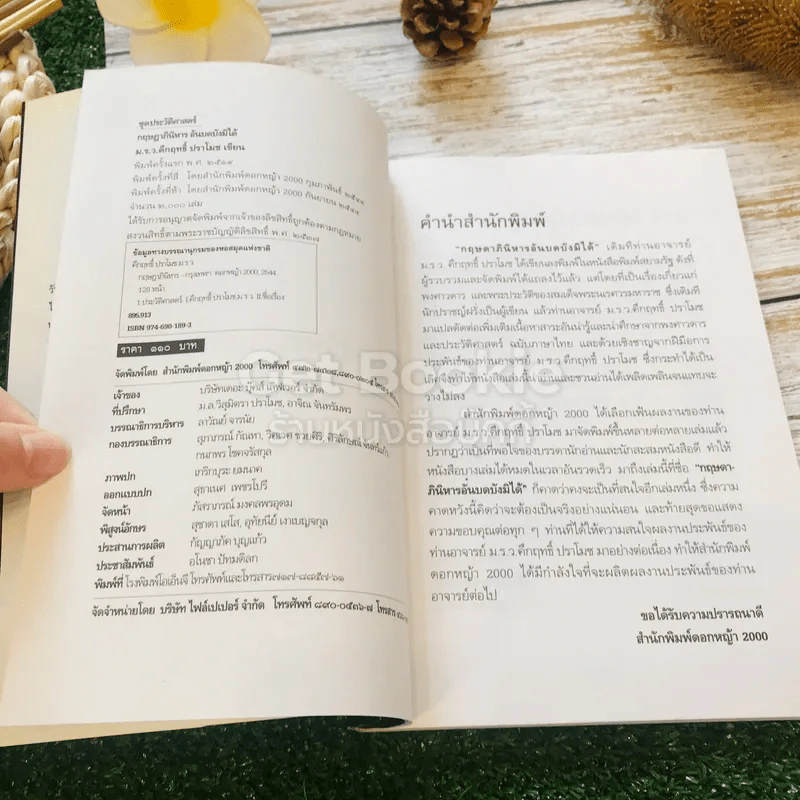 ชุดประวัติศาสตร์
กฤษฎาภินิหาร อันบดบังมิได้
ม.ร.ว.คึกฤทธิ์ ปราโมช เขียน
พิมพ์ครั้งแรก พ.ศ. ๒๕๑๙
พิมพ์ครั้งที่สี่ โดยสำนักพิมพ์ดอกหญ้า 2000 กุมภาพันธ์ ๒๕๔๔
พิมพ์ครั้งที่ห้า โดยสำนักพิมพ์ดอกหญ้า 2000 กันยายน ๒๕๔๔
จำนวน ๒,๐๐๐ เล่ม
ได้รับการอนุญาตจัดพิมพ์จากเจ้าของลิขสิทธิ์ถูกต้องตามกฎหมาย
สงวนสิทธิ์ตามพระราชบัญญัติลิขสิทธิ์ พ.ศ. ๒๕๓๗
ข้อมูลทางบรรณานุกรมของหอสมุดแห่งชาติ
คึกฤทธิ์ ปราโมช,ม.ร.ว.
กฤษฎาภินิหาร.--กรุงเทพฯ: ดอกหญ้า 2000, 2544.
128 หน้า.
1.ประวัติศาสตร์ I.คึกฤทธิ์ ปราโมช,ม.ร.ว. II.ชื่อเรื่อง
895.913
ISBN 974-690-189-3
ราคา ๑๑๐ บาท
จัดพิมพ์โดย สำนักพิมพ์ดอกหญ้า 2000 โทรศัพท์
เจ้าของ บริษัทเดอะ บุ๊คส์ เลิฟเวอร์ จำกัด
ที่ปรึกษา ม.ล.วิสุมิตรา ปราโมช, อาจิณ จันทรัมพร
บรรณาธิการบริหาร ลาวัณย์ จารนัย
กองบรรณาธิการ สุภาภรณ์ กัณหา,
กนกพร โชคจรัสกุล
ภาพปก เกริกบุระ ยมนาค
ออกแบบปก สุธาเนศ เพชรโปรี
จัดหน้า ภัสราภรณ์ มงคลพรอุดม
พิสูจน์อักษร สุชาดา เสโส, อุทัยนีย์ เงาเบญจกุล
ประสานการผลิต กัญญาภัค บุญแก้ว
ประชาสัมพันธ์ อโนชา ปัทมดิลก
พิมพ์ที่ โรงพิมพ์โอเอ็นจี โทรศัพท์และโทรสาร๗๑๗-๘๘๕๗-๖๑
จัดจำหน่ายโดย บริษัท ไฟล์เปเปอร์ จำกัด โทรศัพท์ ๘๙๐-๐๕๓๖-๗ โทรสาร
คำนำสำนักพิมพ์
"กฤษดาภินิหารอันบดบังมิได้" เดิมทีท่านอาจารย์
ม.ร.ว. คึกฤทธิ์ ปราโมช ได้เขียนลงพิมพ์ในหนังสือพิมพ์สยามรัฐ ดังที่
ผู้รวบรวมและจัดพิมพ์ได้แถลงไว้แล้ว แต่โดยที่เป็นเรื่องเกี่ยวแก่
พงศาวดาร และพระประวัติของสมเด็จพระนเรศวรมหาราช ซึ่งเดิมที
นักปราชญ์ฝรั่งเป็นผู้เขียน แล้วท่านอาจารย์ ม.ร.ว.คึกฤทธิ์ ปราโมช
มาแปลดัดต่อเพิ่มเติมเนื้อหาสาระอันน่ารู้และน่าศึกษาจากพงศาวดาร
และประวัติศาสตร์ ฉบับภาษาไทย และด้วยเชิงชาญจากฝีมือการ
ประพันธ์ของท่านอาจารย์ ม.ร.ว.คึกฤทธิ์ ปราโมช ซึ่งกระทำได้เป็น
เลิศ จึงทำให้หนังสือเล่มนี้น่าอ่านและชวนอ่านได้เพลิดเพลินจนแทบจะ
วางไม่ลง
สำนักพิมพ์ดอกหญ้า 2000 ได้เลือกเฟ้นผลงานของท่าน
อาจารย์ ม.ร.ว.คึกฤทธิ์ ปราโมช มาจัดพิมพ์ขึ้นหลายต่อหลายเล่มแล้ว
ปรากฏว่าเป็นที่พอใจของบรรดานักอ่านและนักสะสมหนังสือดี ทำให้
หนังสือบางเล่มได้หมดในเวลาอันรวดเร็ว มาถึงเล่มนี้ที่ชื่อ "กฤษดา-
ภินิหารอันบดบังมิได้" ก็คาดว่าคงจะเป็นที่สนใจอีกเล่มหนึ่ง ซึ่งความ
คาดหวังนี้คิดว่าจะต้องเป็นจริงอย่างแน่นอน และท้ายสุดขอแสดง
ความขอบคุณต่อทุก ๆ ท่านที่ได้ให้ความสนใจผลงานประพันธ์ของ
ท่านอาจารย์ ม.ร.ว.คึกฤทธิ์ ปราโมช มาอย่างต่อเนื่อง ทำให้สำนักพิมพ์
ดอกหญ้า 2000 ได้มีกำลังใจที่จะผลิตผลงานประพันธ์ของท่าน
อาจารย์ต่อไป
ขอได้รับความปรารถนาดี
สำนักพิมพ์ดอกหญ้า 2000
Get Bookie
ร้านหนังสือมือสอง